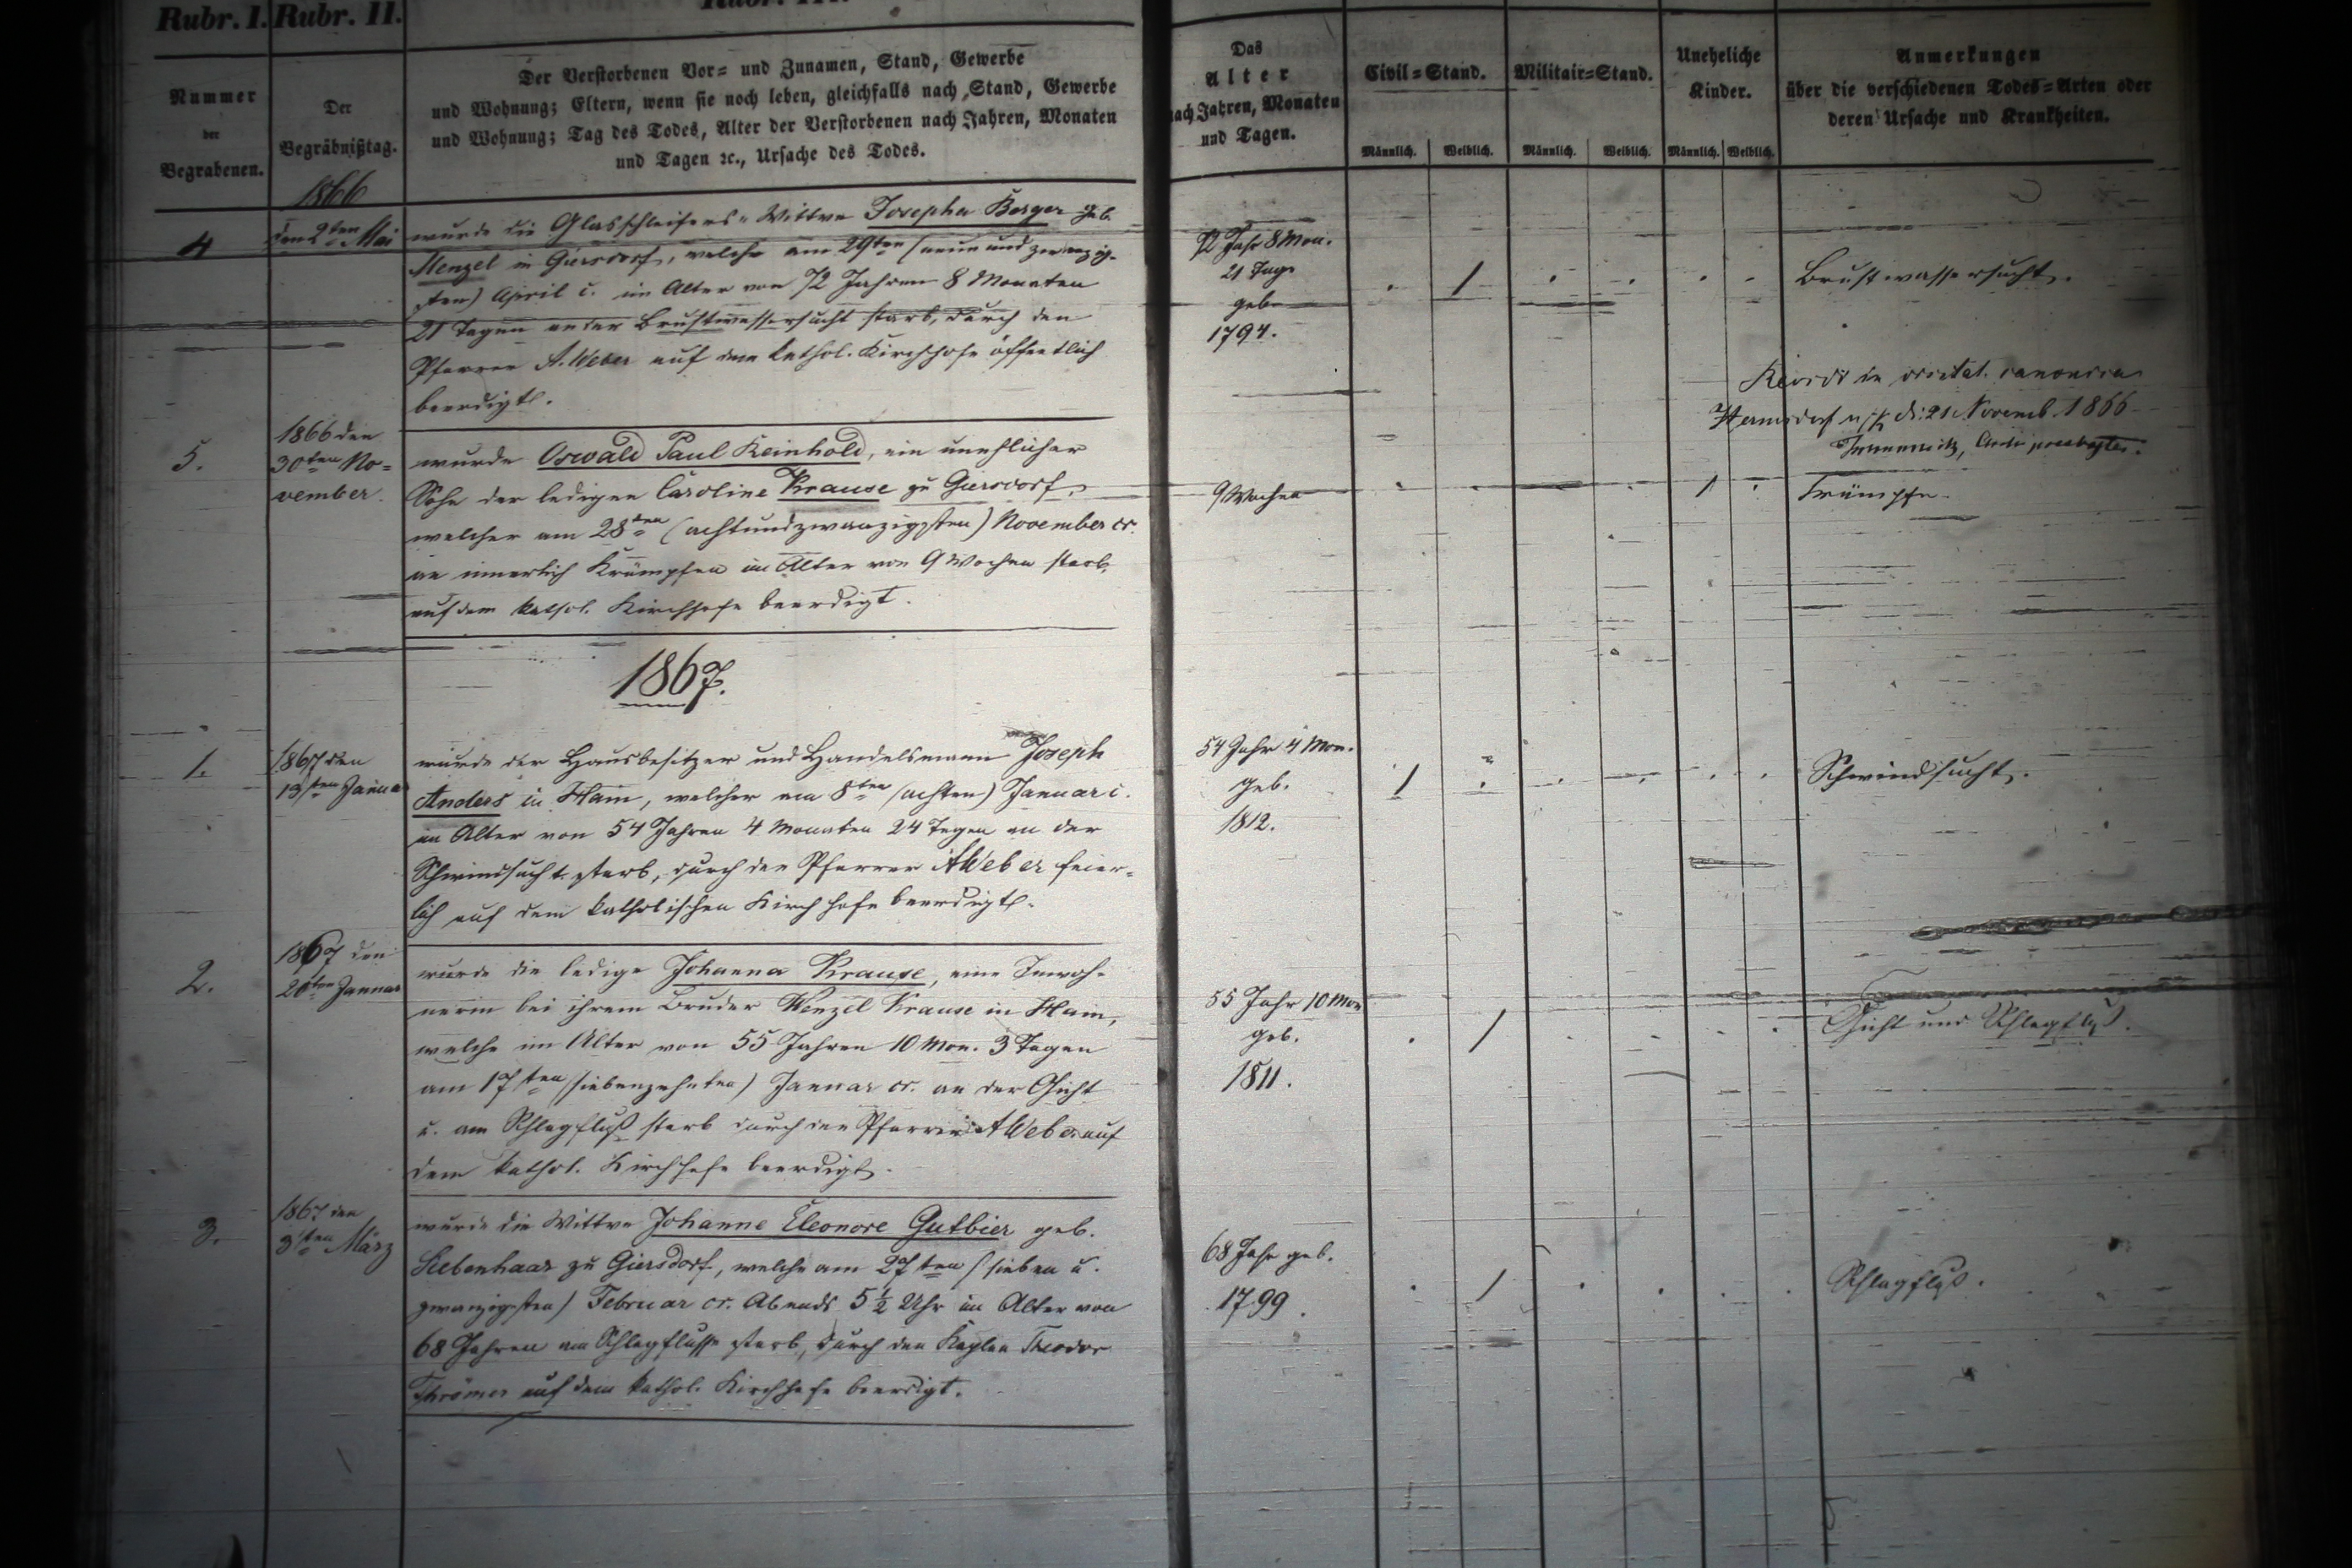 Rubr. I.
Rubr. II.
Nummer
der
Begrabenen.
Der
Begräbnißtag.
Der Verstorbenen Vor= und Zunamen, Stand, Gewerbe
und Wohnung; Eltern, wenn sie noch leben, gleichfalls nach Stand, Gewerbe
und Wohnung; Tag des Todes, Alter der Verstorbenen nach Jahren, Monaten
und Tagen ꝛc., Ursache des Todes.
Das
Alter
nach Jahren, Monaten
und Tagen.
Civil=Stand.
Männlich. Weiblich.
Militair=Stand.
Männlich. Weiblich.
Uneheliche
Kinder.
Männlich. Weiblich.
Anmerkungen
über die verschiedenen Todes=Arten oder
deren Ursache und Krankheiten.
1866
4
den 2ten Mai
wurde die Glasschleifers-Wittwe Josepha Berger geb.
Menzel in Giersdorf, welche am 29ten (neun und zwanzig-
sten) April c. im Alter von 72 Jahren 8 Monaten
21 Tagen an der Brustwassersucht starb, durch den
Pfarrer A. Weber auf dem kathol. Kirchhofe öffentlich
beerdigt.
72 Jahr 8 Mon.
21 Tage
geb.
1794.
1
Brustwassersucht.
canonica
Hermsdorf u/K d. 21 Novemb. 1866
5.
1866 den
30ten No=
vember.
wurde Oswald Paul Reinhold, ein unehlicher
Sohn der ledigen Caroline Krause zu Giersdorf,
welcher am 28ten (achtundzwanzigsten) November cr.
an innerlich Krämpfen im Alter von 9 Wochen starb,
auf dem kathol. Kirchhofe beerdigt.
9 Wochen
1
1867.
1.
1867 den
13ten Januar
wurde der Hausbesitzer und Handelsmann Joseph
Anders in Hain, welcher am 8ten (achten) Januar c.
im Alter von 54 Jahren 4 Monaten 24 Tagen an der
Schwindsucht starb, durch den Pfarrer A Weber feier-
lich auf dem katholischen Kirchhofe beerdigt.
54 Jahr 4 Mon.
geb.
1812.
1
Schwindsucht.
2.
1867 den
20ten Januar
wurde die ledige Johanna Krause, eine Inwoh-
nerin bei ihrem Bruder Wenzel Krause in Hain,
welche im Alter von 55 Jahren 10 Mon. 3 Tagen
am 17ten (siebenzehnten) Januar cr. an der Gicht
u. am Schlagfluß starb durch den Pfarrer A Weber auf
dem kathol. Kirchhofe beerdigt.
55 Jahr 10 Mon
geb.
1811.
1
Gicht und Schlagfluß.
3.
1867 den
3ten März
wurde die Wittwe Johanne Eleonore Gutbier geb.
Siebenhaar zu Giersdorf, welche am 27ten (sieben u.
zwanzigsten) Februar cr. Abends 5 ½ Uhr im Alter von
68 Jahren am Schlagflusse starb, durch den Kaplan Theodor
Thrömer auf dem kathol. Kirchhofe beerdigt.
68 Jahr geb.
1799.
1
Schlagfluß.